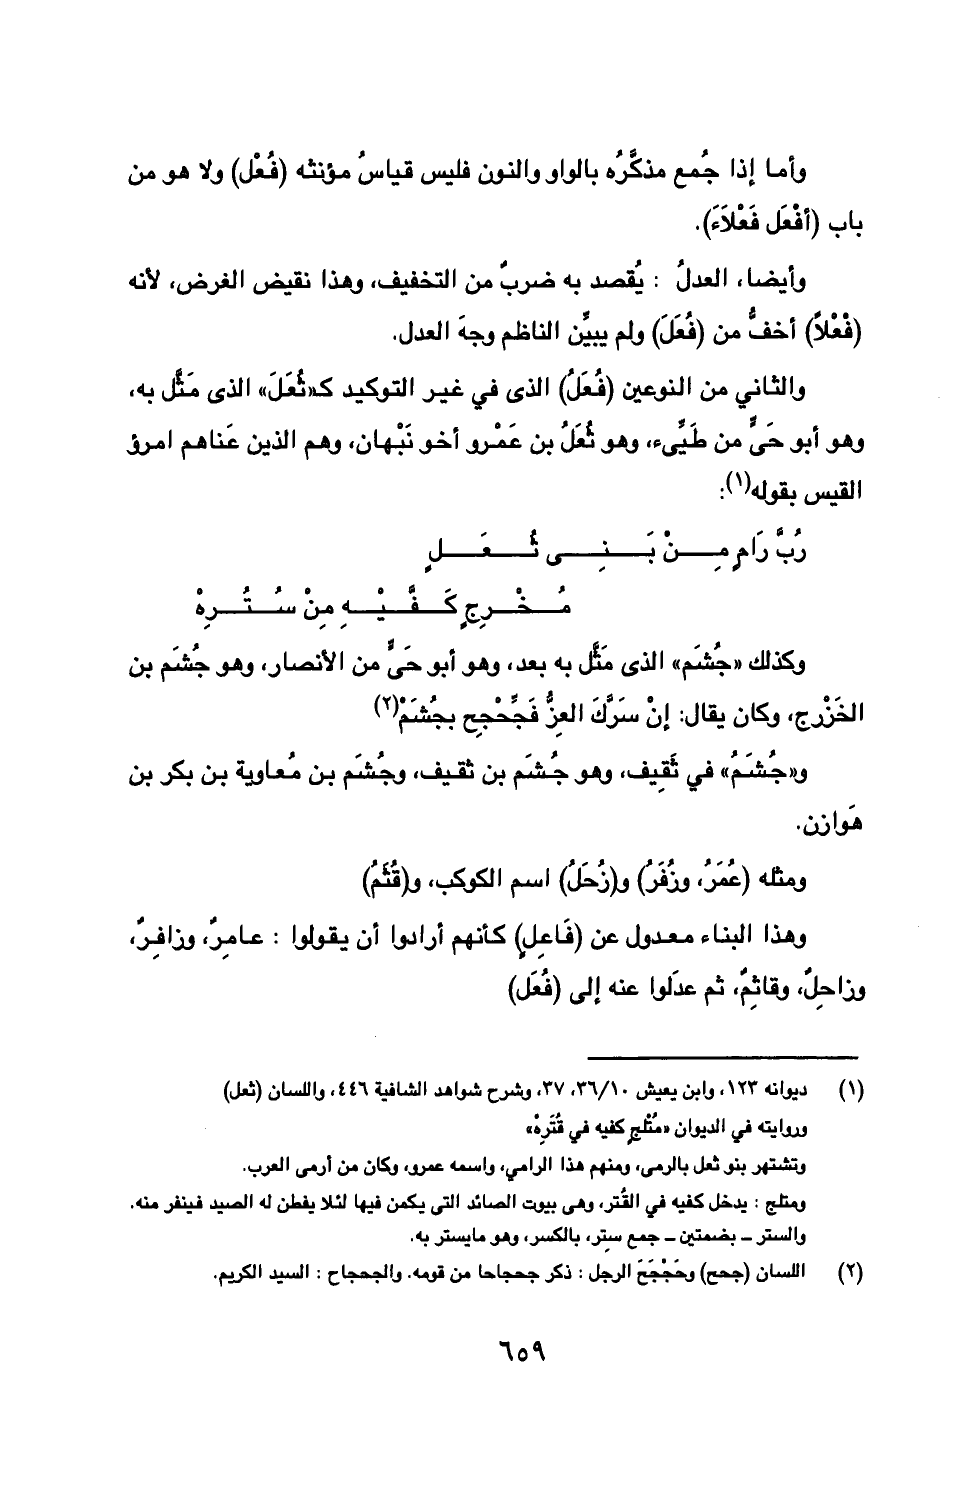 وأما إذا جُمع مذكَّرُه بالواو والنون فليس قياسُ مؤنثه (فُعْل) ولا هو من
باب (أفْعَل فَعْلاَءَ).
وأيضا، العدلُ : يُقصد به ضربٌ من التخفيف، وهذا نقيض الغرض، لأنه
(فْعْلاً) أخفُّ من (فُعَلَ) ولم يبيِّن الناظم وجهَ العدل.
والثاني من النوعين (فُعَلُ) الذى في غير التوكيد كـ«ثُعَلَ» الذى مَثَّل به،
وهو أبو حَىٍّ من طَيِّىء، وهو ثُعَلُ بن عَمْرو أخو نَبْهان، وهم الذين عَناهم امرؤ
القيس بقوله(١):
رُبَّ رَامٍ مِـــنْ بَــنِــى ثُــعَــلٍ
مُــخْــرِجٍ كَــفَّــيْــهِ مِنْ سُــتُــرِهْ
وكذلك «جُشَم» الذى مَثَّل به بعد، وهو أبو حَىٍّ من الأنصار، وهو جُشَم بن
الخَزْرج، وكان يقال: إنْ سَرَّكَ العِزُّ فَجَّحْجِح بجُشَمْ(٢)
و«جُشَمُ» في ثَقِيف، وهو جُشَم بن ثقيف، وجُشَم بن مُعاوية بن بكر بن
هَوازن.
ومثله (عُمَرُ، وزُفَرُ) و(زُحَلُ) اسم الكوكب، و(قُثَمُ)
وهذا البناء معدول عن (فَاعِلٍ) كأنهم أرادوا أن يقولوا : عامِرٌ، وزافِرٌ،
وزاحِلٌ، وقاثِمٌ، ثم عدَلوا عنه إلى (فُعَل)
(١) ديوانه ١٢٣، وابن يعيش ٣٦/١٠، ٣٧، وشرح شواهد الشافية ٤٤٦، واللسان (ثعل)
وروايته في الديوان «مُتْلِجٍ كفيه في قُتَرِهْ»
وتشتهر بنو ثعل بالرمى، ومنهم هذا الرامي، واسمه عمرو، وكان من أرمى العرب.
ومتلج : يدخل كفيه في القُتر، وهى بيوت الصائد التى يكمن فيها لئلا يفطن له الصيد فينفر منه.
والستر ــ بضمتين ــ جمع سِتر، بالكسر، وهو مايستر به.
(٢) اللسان (جحح) وجَحْجَحَ الرجل : ذكر جحجاحا من قومه. والجحجاح : السيد الكريم.
٦٥٩